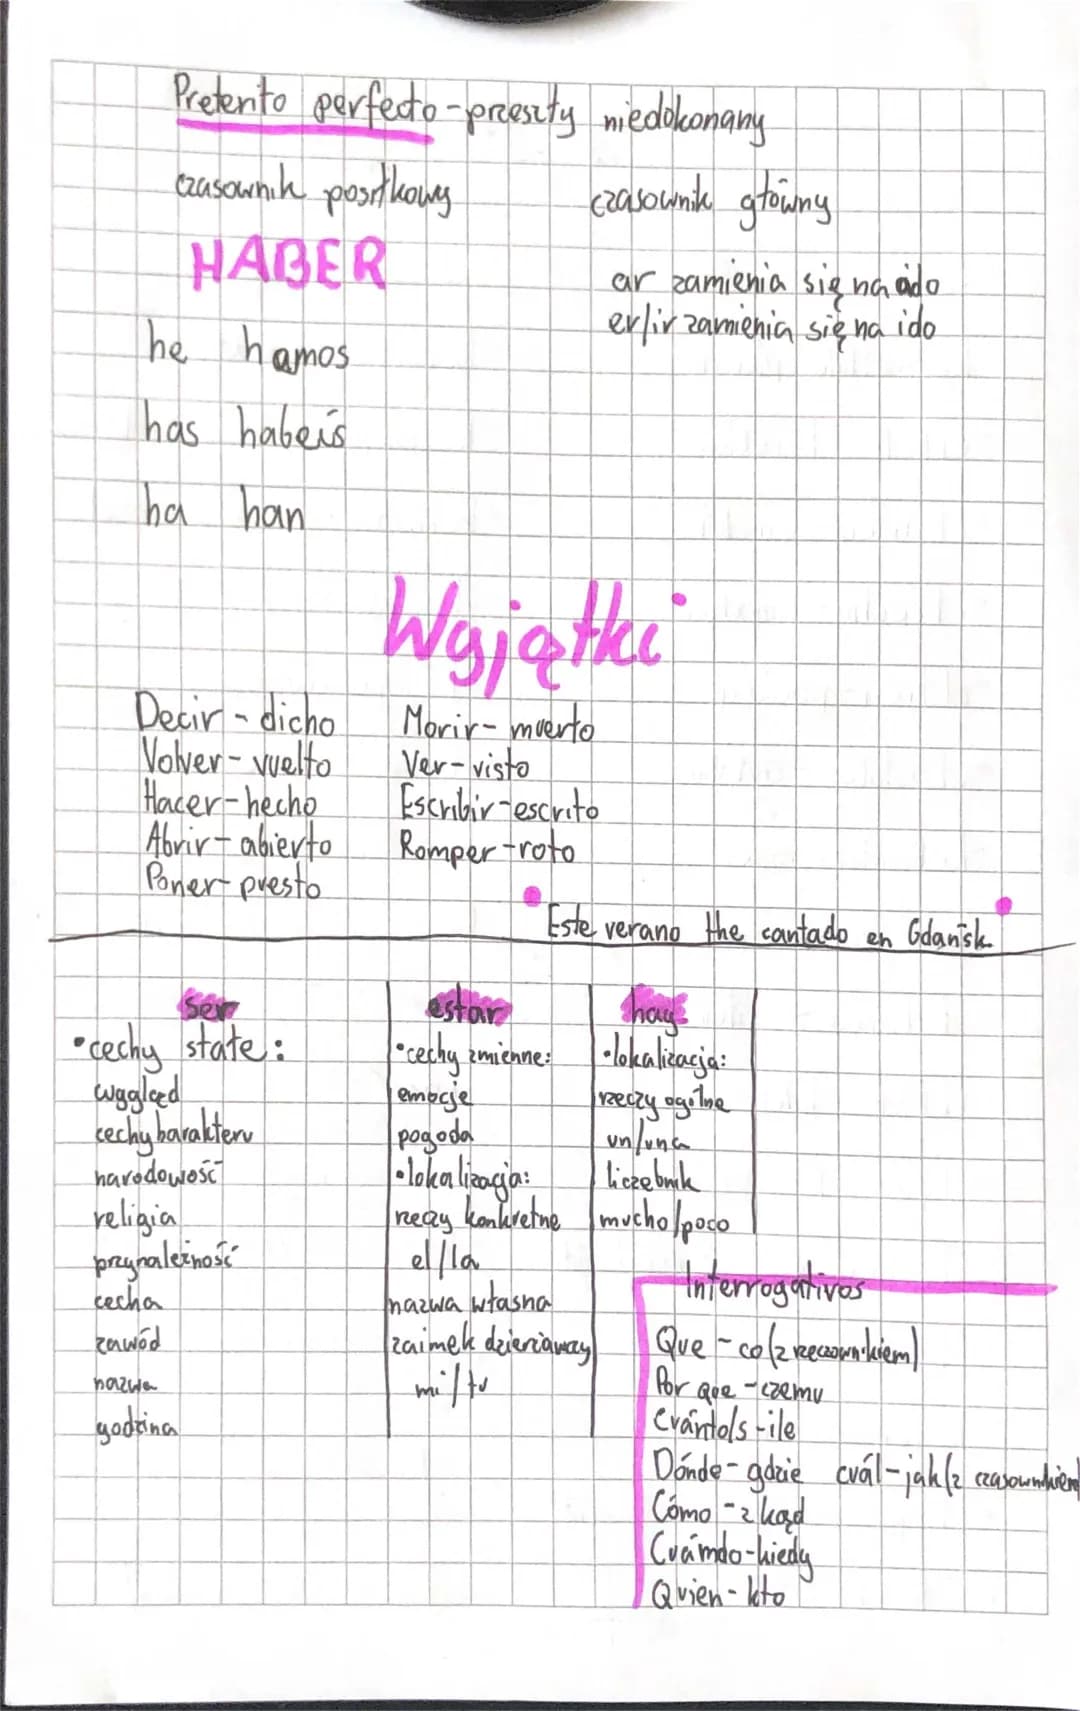 Preterito perfecto - przeszły niedokonany
czasownik posiłkowy
HABER
he hamos
has habeis
ha han
czasownik główny
ar zamienia się na ado
er/ir zamienia się na ido
Wyjątki
Decir - dicho
Volver - vuelto
Hacer - hecho
Abrir - abierto
Poner - puesto
Morir - muerto
Ver - visto
Escribir - escrito
Romper - roto
Este verano he cantado en Gdańsk
ser
• cechy stałe:
wygląd
cechy harakteru
narodowość
religia
przynależność
cecha
zawód
nazwa
godzina
estar
• cechy zmienne:
emocje
pogoda
• lokalizacja:
rzeczy konkretne
el/la
nazwa własna
zaimek dzierżawczy
mi/tu
hay
• lokalizacja:
rzeczy ogólne
un/una
liczebnik
mucho/poco
Interrogativos
Que - co (z rzeczownikiem)
Por que - czemu
Cuánto/s - ile
Dónde - gdzie cuál - jak (z czasownikiem
Cómo - z kąd
Cuámdo - kiedy
Quien - kto